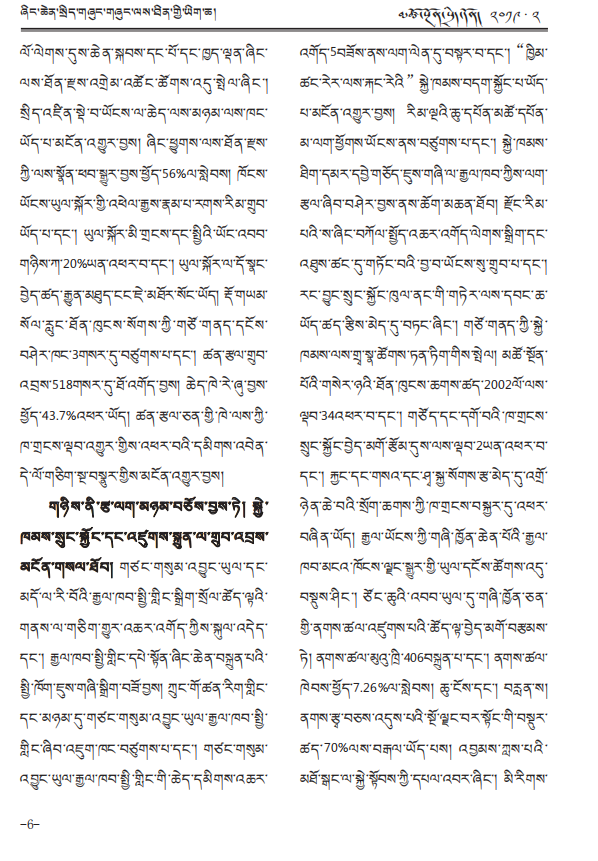 ཞིང་ཆེན་སྲིད་གཞུང་གཞུང་ལས་ཐིན་གྱི་ཡིག་ཆ།
༢༠༡༩ · ༢
ལོ་ལེགས་དུས་ཆེན་སྐབས་དང་པོ་དང་ཁྱད་ལྡན་ཞིང་
ལས་ཐོན་རྫས་འགྲེམ་འཚོང་ཚོགས་འདུ་སྤེལ་ཞིང་།
སྲིད་འཛིན་སྡེ་བ་ཡོངས་ལ་ཆེད་ལས་མཉམ་ལས་ཁང་
ཡོད་པ་མངོན་འགྱུར་བྱས། ཞིང་ཕྱུགས་ལས་ཐོན་རྫས་
ཀྱི་ལས་སྣོན་ཕབ་སྒྱུར་བྱས་ཕྱོད་56%ལ་སླེབས། ཁོངས་
ཡོངས་ཡུལ་སྐོར་གྱི་འཕེལ་རྒྱས་རྣམ་པ་རགས་རིམ་གྲུབ་
ཡོད་པ་དང་། ཡུལ་སྐོར་མི་གྲངས་དང་སྤྱིའི་ཡོང་འབབ་
གཉིས་ཀ་20%ཡན་འཕར་བ་དང་། ཡུལ་སྐོར་ལ་དོ་སྣང་
བྱེད་ཚད་རྒྱུན་མཐུད་ངང་ཇེ་མཐོར་སོང་ཡོད། རྡོ་གཡམ་
སོལ་རླུང་ཐོན་ཁུངས་སོགས་ཀྱི་གཙོ་གནད་དངོས་
བཤེར་ཁང་3གསར་དུ་བཙུགས་པ་དང་། ཚན་རྩལ་གྲུབ་
འབྲས་518གསར་དུ་ཐོ་འགོད་བྱས། ཆེད་ཁེ་རེ་ཞུ་བྱས་
ཕྱོད་43.7%འཕར་ཡོད། ཚན་རྩལ་ཅན་གྱི་ཁེ་ལས་ཀྱི་
ཁ་གྲངས་ལྡབ་འགྱུར་གྱིས་འཕར་བའི་དམིགས་འབེན་
དེ་ལོ་གཅིག་སྔ་བསྒྱུར་གྱིས་མངོན་འགྱུར་བྱས།
གཉིས་ནི་རྩ་ལག་མཉམ་བཅོས་བྱས་ཏེ། སྐྱེ་
ཁམས་སྲུང་སྐྱོང་དང་འཛུགས་སྐྲུན་ལ་གྲུབ་འབྲས་
མངོན་གསལ་ཐོབ། གཙང་གསུམ་འབྱུང་ཡུལ་དང་
མདོ་ལ་རི་བོའི་རྒྱལ་ཁབ་སྤྱི་གླིང་སྒྲིག་སྲོལ་ཚོད་ལྟའི་
གནས་ལ་གཅིག་གྱུར་འཆར་འགོད་ཀྱིས་སྐུལ་འདེད་
དང་། རྒྱལ་ཁབ་སྤྱི་གླིང་དཔེ་སྟོན་ཞིང་ཆེན་བསྐྲུན་པའི་
སྤྱི་ཁོག་ཇུས་གཞི་སྒྲིག་བཟོ་བྱས། ཀྲུང་གོ་ཚན་རིག་གླིང་
དང་མཉམ་དུ་གཙང་གསུམ་འབྱུང་ཡུལ་རྒྱལ་ཁབ་སྤྱི་
གླིང་ཞིབ་འཇུག་ཁང་བཙུགས་པ་དང་། གཙང་གསུམ་
འབྱུང་ཡུལ་རྒྱལ་ཁབ་སྤྱི་གླིང་གི་ཆེད་དམིགས་འཆར་
འགོད་5བཟོས་ནས་ལག་ལེན་དུ་བསྟར་བ་དང་། “ཁྱིམ་
ཚང་རེར་ལས་རྐང་རེའི” སྐྱེ་ཁམས་བདག་སྐྱོང་པ་ཡོད་
པ་མངོན་འགྱུར་བྱས། རིམ་ལྔའི་ཆུ་དཔོན་མཚོ་དཔོན་
མ་ལག་ཕྱོགས་ཡོངས་ནས་བཙུགས་པ་དང་། སྐྱེ་ཁམས་
ཐིག་དམར་དབྱེ་གཅོད་ཇུས་གཞི་ལ་རྒྱལ་ཁབ་ཀྱིས་ལག་
རྩལ་ཞིབ་བཤེར་བྱས་ནས་ཆོག་མཆན་ཐོབ། རྫོང་རིམ་
པའི་ས་ཞིང་བཀོལ་སྤྱོད་འཆར་འགོད་ལེགས་སྒྲིག་དང་
འཐུས་ཚང་དུ་གཏོང་བའི་བྱ་བ་ཡོངས་སུ་གྲུབ་པ་དང་།
རང་བྱུང་སྲུང་སྐྱོང་ཁུལ་ནང་གི་གཏེར་ལས་དབང་ཆ་
ཡོད་ཚད་རྩིས་མེད་དུ་བཏང་ཞིང་། གཙོ་གནད་ཀྱི་སྐྱེ་
ཁམས་ལས་གྲྭ་སྣ་ཚོགས་ཏན་ཏིག་གིས་སྤེལ། མཚོ་སྔོན་
པོའི་གསེར་ཉའི་ཐོན་ཁུངས་ཆགས་ཚད་2002ལོ་ལས་
ལྡབ་34འཕར་བ་དང་། གཙོད་དང་དགོ་བའི་ཁ་གྲངས་
སྲུང་སྐྱོང་བྱེད་མགོ་རྩོམ་དུས་ལས་ལྡབ་2ཡན་འཕར་བ་
དང་། རྐྱང་དང་གསའ་དང་ཤྭ་སྐྱ་སོགས་རྩ་མེད་དུ་འགྲོ་
ཉེན་ཆེ་བའི་སྲོག་ཆགས་ཀྱི་ཁ་གྲངས་བསྐྱར་དུ་འཕར་
བཞིན་ཡོད། རྒྱལ་ཡོངས་ཀྱི་གཞི་ཁྱོན་ཆེན་པོའི་རྒྱལ་
ཁབ་མངའ་ཁོངས་ལྗང་སྒྱུར་གྱི་ཡུལ་དངོས་ཚོགས་འདུ་
བསྡུས་ཤིང་། ཙོང་ཆུའི་འབབ་ཡུལ་དུ་གཞི་ཁྱོན་ཅན་
གྱི་ནགས་ཚལ་འཛུགས་པའི་ཚོད་ལྟ་བྱེད་མགོ་བརྩམས་
ཏེ། ནགས་ཚལ་མུའུ་ཁྲི་406བསྐྲུན་པ་དང་། ནགས་ཚལ་
ཁེབས་ཕྱོད་7.26%ལ་སླེབས། ཆུ་ངོས་དང་། བརླན་ས།
ནགས་རྩྭ་བཅས་འདུས་པའི་སྔོ་ལྗང་བར་སྟོང་གི་བསྡུར་
ཚད་70%ལས་བརྒལ་ཡོད་པས། འབྱམས་ཀླས་པའི་
མཐོ་སྒང་ལ་སྐྱེ་སྟོབས་ཀྱི་དཔལ་འབར་ཞིང་། མི་རིགས་
–6–